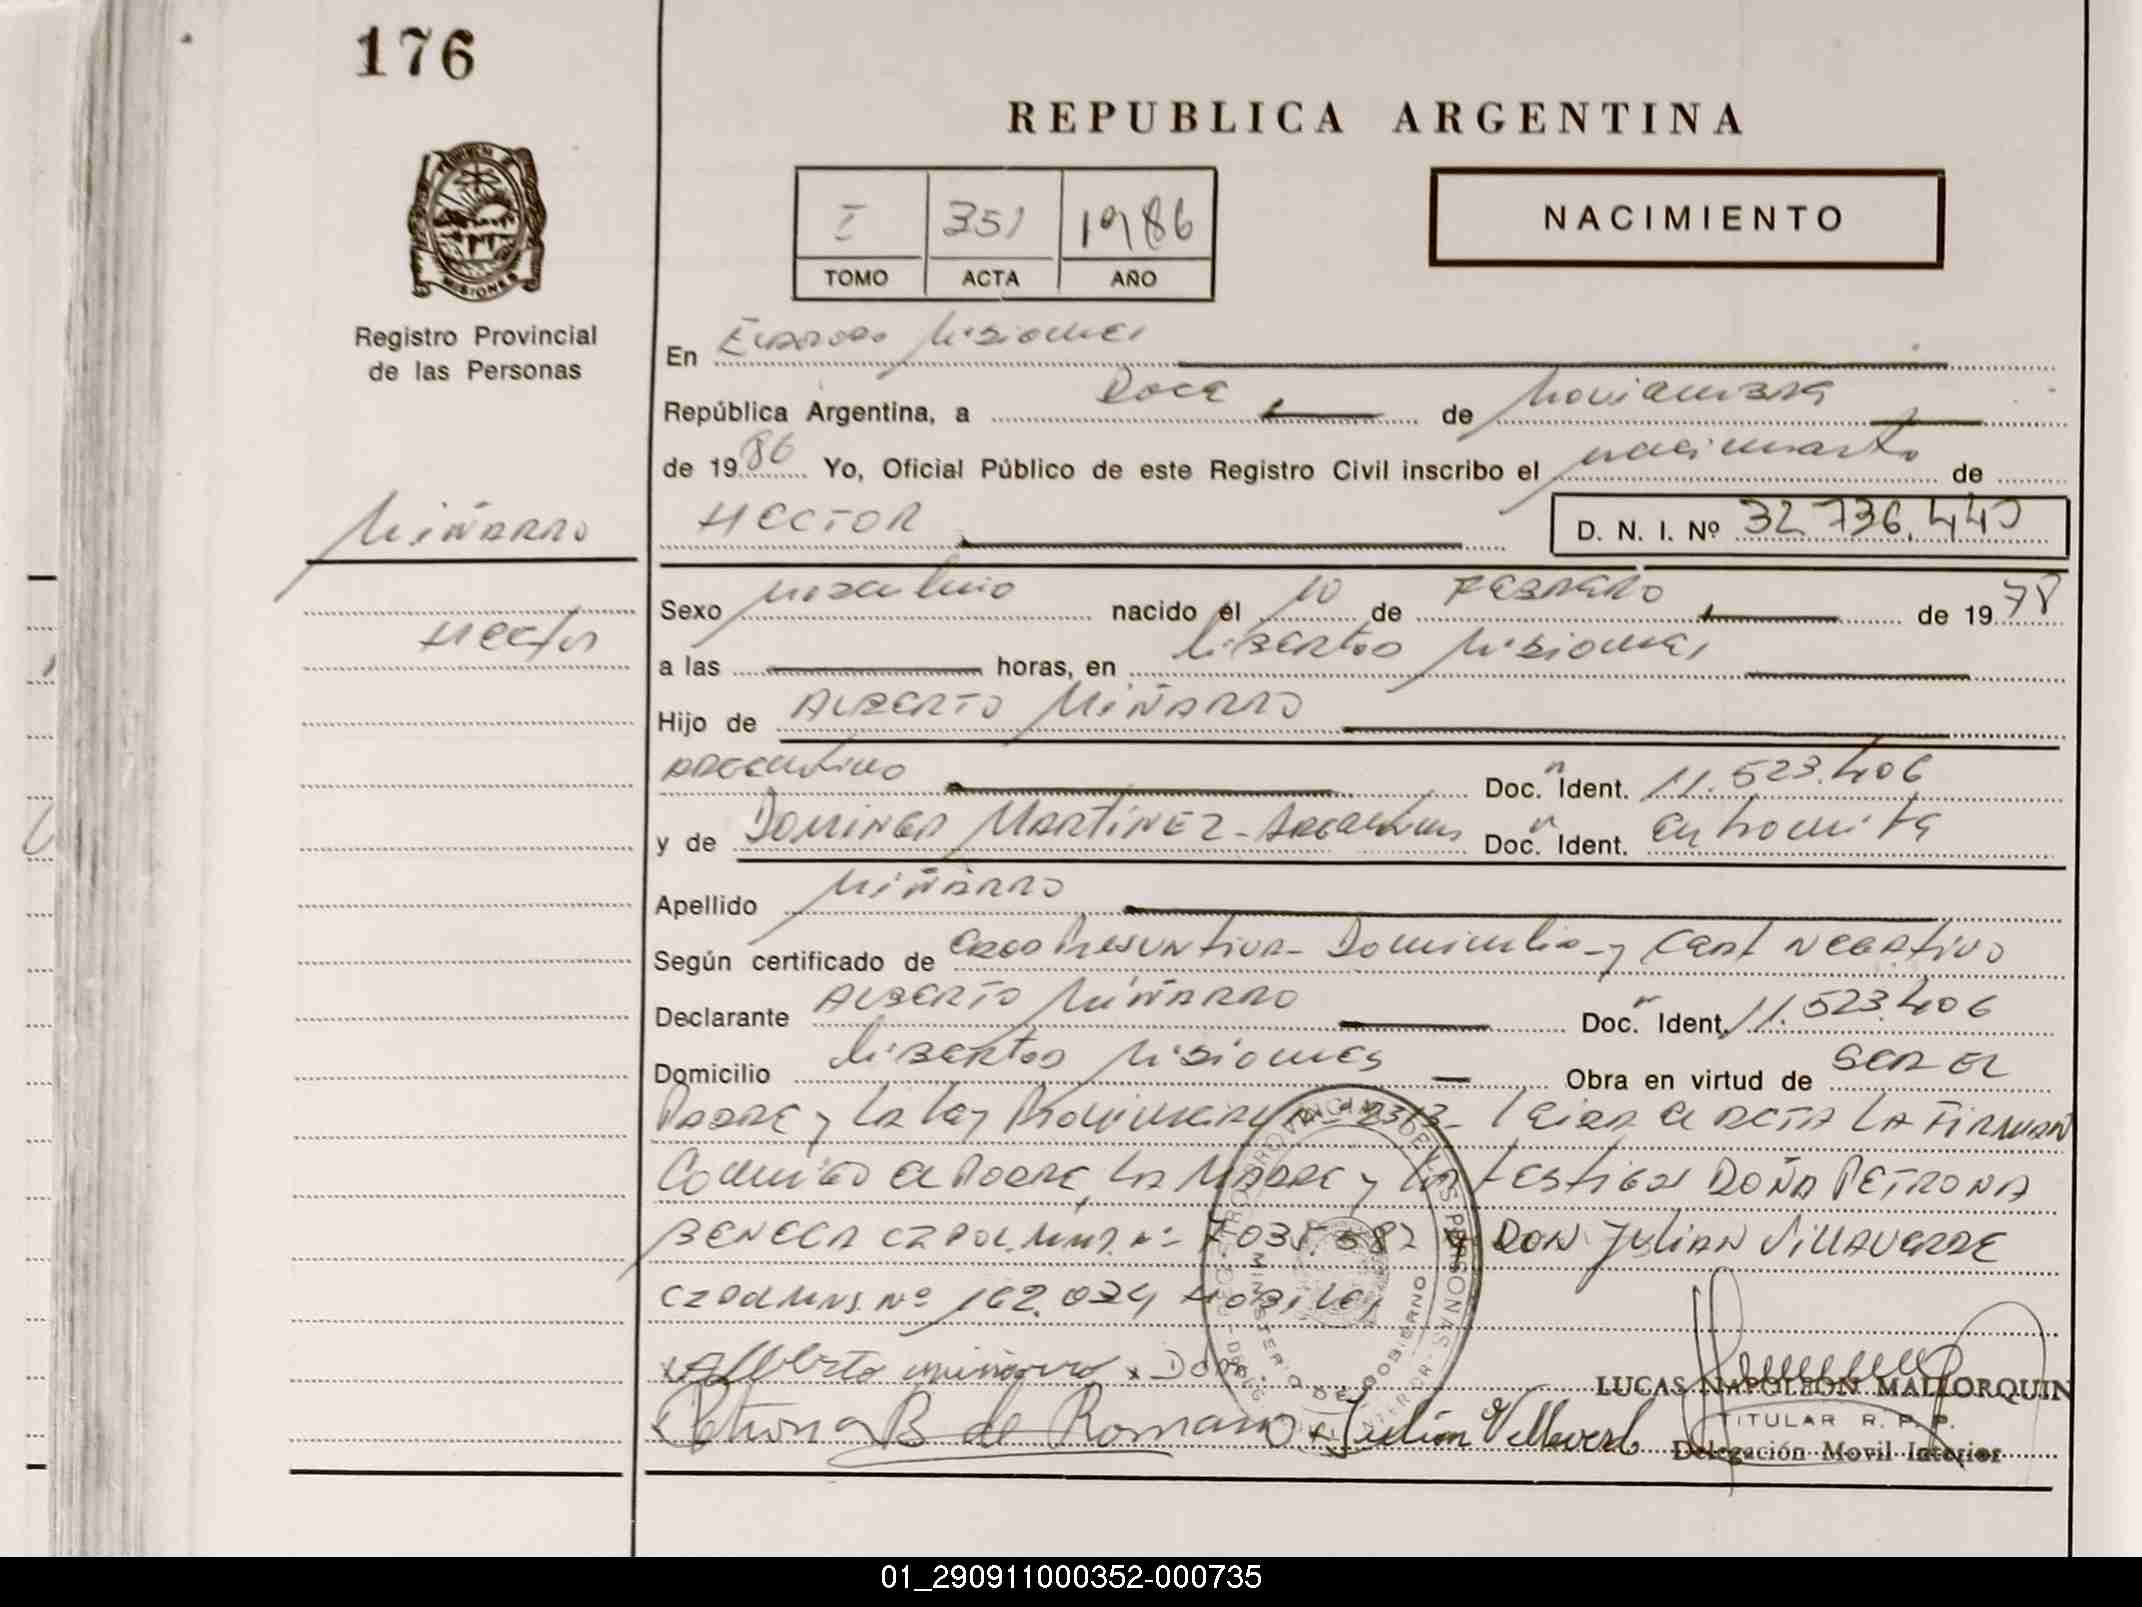 176
REPUBLICA ARGENTINA
I 351 1986
TOMO ACTA AÑO
NACIMIENTO
MISIONES
Registro Provincial
de las Personas
En Eldorado Misiones
República Argentina, a Doce de Noviembre
de 1986 Yo, Oficial Público de este Registro Civil inscribo el nacimiento de
Miñarro
HECTOR D. N. I. Nº 32736.440
Hector
Sexo masculino nacido el 10 de Febrero de 1978
a las horas, en Libertad Misiones
Hijo de ALBERTO MIÑARRO
argentino Doc. Ident. 11.523.406
y de DOMINGA MARTINEZ - Argentina Doc. Ident.
Apellido MIÑARRO
Según certificado de edad Presuntiva - Domicilio - y Cert Negativo
Declarante ALBERTO MIÑARRO Doc. Ident. 11.523.406
Domicilio Libertad Misiones Obra en virtud de SER EL
PADRE y la Ley Provincial Nº 2313 - Leida el ACTA LA FIRMAN
Conmigo el PADRE, LA MADRE y los testigos DOÑA PETRONA
BENEGA CZ POL. Mns. Nº 7035.582 y DON JULIAN VILLAVERDE
CZ Pol Mns. Nº 162.034 Habiles
x Alberto miñarro x Dom.
x Petrona B de Romano x Julián Villaverde
LUCAS NAPOLEON MALLORQUIN
TITULAR R. P. P.
Delegación Movil Interior
MINISTERIO DE GOBIERNO
01_290911000352-000735